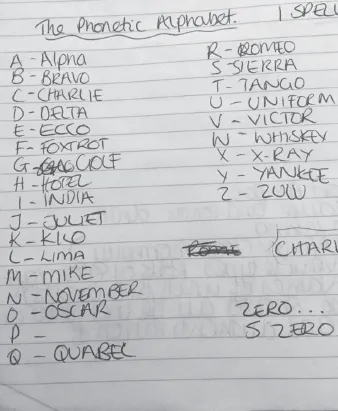 The Phonetic Alphabet.
1 SPELL
A - Alpha
B - BRAVO
C - CHARLIE
D - DELTA
E - ECCO
F - FOXTROT
G - GOLF
H - HOTEL
I - INDIA
J - JULIET
K - KILO
L - LIMA
M - MIKE
N - NOVEMBER
O - OSCAR
P -
Q - QUABEC
R - ROMEO
S - SIERRA
T - TANGO
U - UNIFORM
V - VICTOR
W - WHISKEY
X - X-RAY
Y - YANKEE
Z - ZULU
CHARL
ZERO...
S ZERO